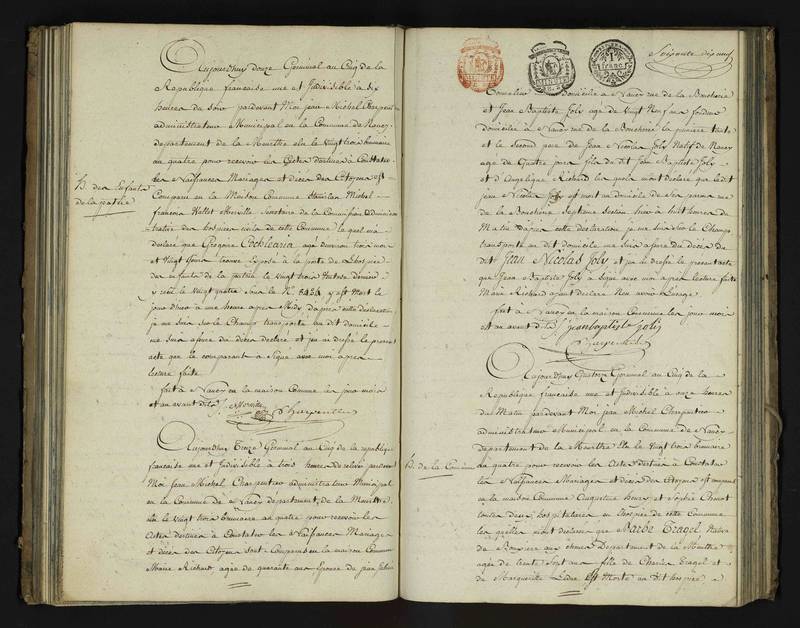 Aujourdhuy douze Germinal au Cinq de la
Republique francaise une et Indivisible à six
heures du soir pardevant Moi jean Michel Charpentier
administrateur Municipal en la Commune de Nancy
departement de la Meurthe élu le vingt trois brumaire
an quatre pour recevoir les Actes destinés à Constater
les Naissances Mariages et décès des Citoyens est
Comparu en la Maison Commune Stanislas Michel
francois Secretaire de la Commission administrative
des hospices civils de cette Commune lequel m'a
déclaré que Gregoire Cochlearia agé d'environ trois mois
et Vingt jours trouvé Exposé à la porte de L'hospice
des enfants de la patrie le vingt trois dernier
y créé le vingt quatre sous le No. 8434 y est Mort le
jourd'huy à une heure après Midy d'après cette déclaration
je me suis sur le Champ transporté au dit domicile
me suis assuré du décès déclaré et j'en ai dressé le present
acte que le comparant a Signé avec moi après
lecture faite
fait à Nancy en la maison Commune les jour mois
et an avant dits
h. des Enfants
de la patrie
Aujourdhuy Treize Germinal au Cinq de la republique
francaise une et Indivisible à trois heures de relevé pardevant
Moi Jean Michel Charpentier administrateur Municipal
en la Commune de Nancy departement de la Meurthe
élu le vingt trois brumaire an quatre pour recevoir les
Actes destinés à Constater les Naissances Mariages
et décès des Citoyens sont Comparus en la maison Commune
Marie Richard agée de quarante ans Epouse de jean
Soixante dix neuf
1 franc
domicilié à Nancy rue de la Boucherie
et Jean Baptiste Joly agé de vingt Neuf ans
domicilié à Nancy rue de la Boucherie la premiere tante
et le Second pere de Jean Nicolas Joly Natif de Nancy
agé de Quatre jours fils de dit Jean Baptiste Joly
et d'Angelique Richard lesquels m'ont déclaré que le dit
jean Nicolas Joly est mort au domicile de Ses pere et mere
de la Boucherie Septieme Section à huit heures du
Matin d'après cette déclaration je me suis sur le Champ
transporté au dit domicile me suis assuré du décès du
dit Jean Nicolas Joly et j'en ai dressé le present acte
que Jean Baptiste Joly a Signé avec moi après lecture faite
Marie Richard ayant déclaré N'en avoir L'usage
fait à Nancy en la maison Commune les jour mois
et an avant dits jeanbaptiste joly
Aujourdhuy Quatorze Germinal au Cinq de la
Republique francaise une et Indivisible à onze heures
du Matin pardevant Moi jean Michel Charpentier
administrateur Municipal en la Commune de Nancy
departement de la Meurthe élu le vingt trois brumaire
h. de la Commune
an quatre pour recevoir les Actes destinés à Constater
les Naissances Mariages et décès des Citoyens est comparu
en la maison Commune et Sophie
toutes deux hospitalieres en l'hospice de cette Commune
lesquelles m'ont déclaré que Barbe Tragel Native
de Rosieres Departement de la Meurthe
agée de trente Sept ans fille de Charles Tragel et
de Marguerite est Morte au dit hospice